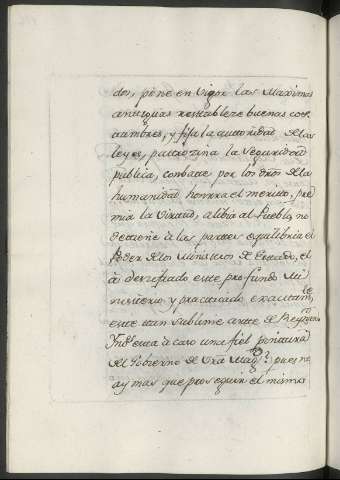 dos, pone en Vigor las Maximas
antiguas restableze buenas cos
tumbres, y fija la autoridad de las
leyes, patrozina la seguridad
publica, combate por los dros de la
humanidad honrra el merito, pre
mia la Virtud, alibia al Pueblo, no
detiene à las partes equilibria el
Poder de los Ministros de Estado, el
à descifrado este profundo Mi
nisterio y practicado exactamte
este tan sublime arte de Reynar
Yndº esta à caso una fiel pintura
del Gobierno de Vra Magd? pues no
ay mas que proseguir el mismo